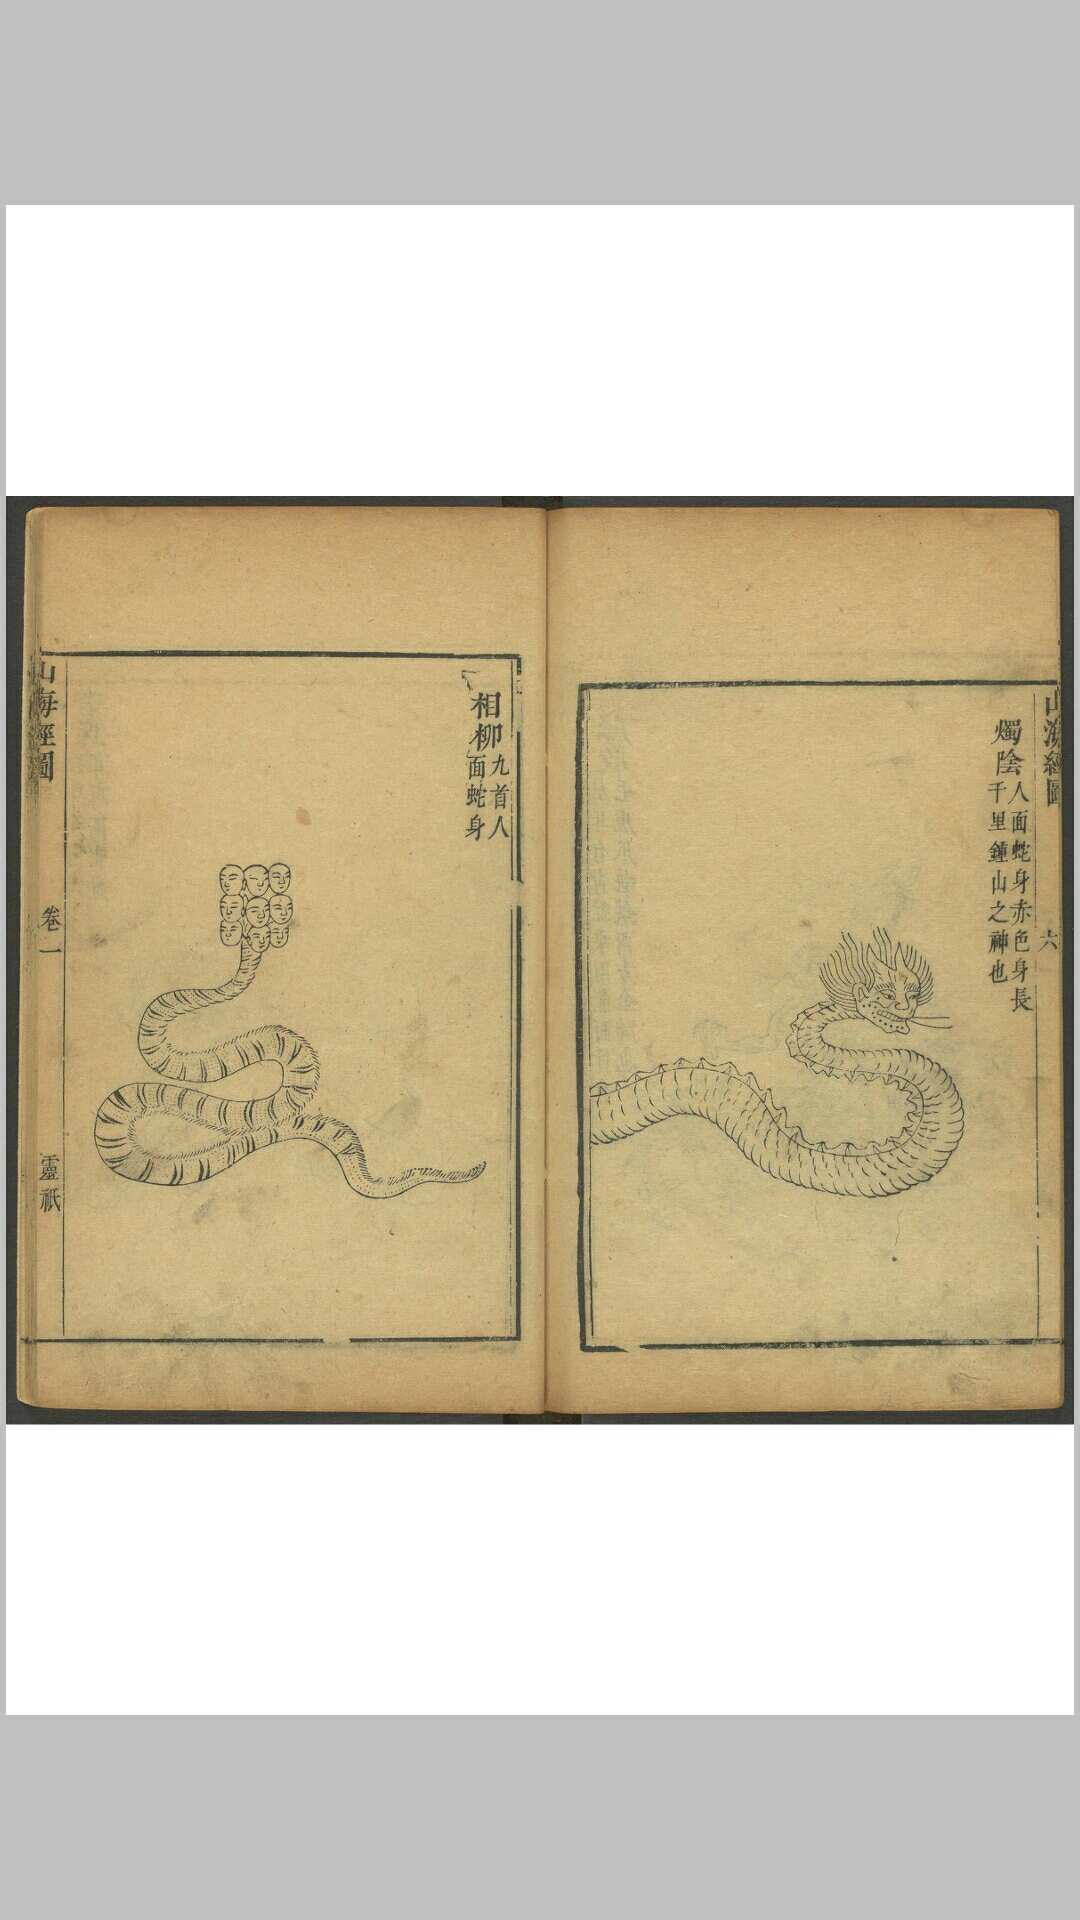 山海經圖
六
燭陰
人面蛇身赤色身長
千里鍾山之神也
相柳
九首人
面蛇身
山海經圖
卷一
靈祇